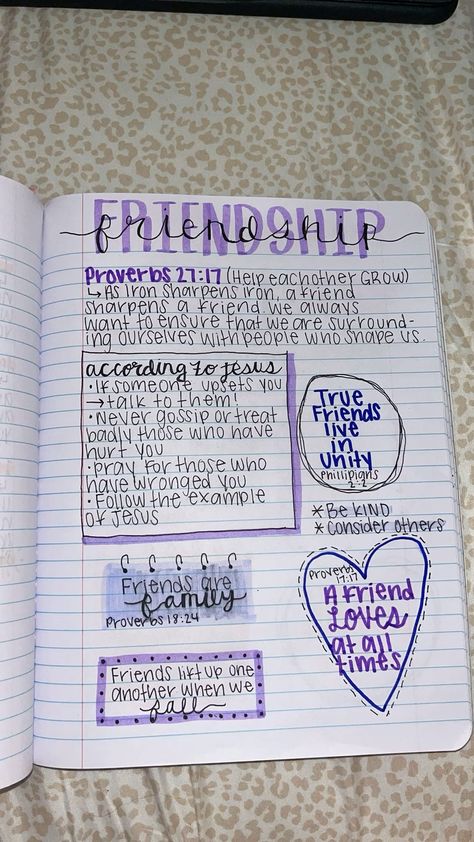 FRIENDSHIP
friendship
Proverbs 27:17 (Help eachother GROW)
↳ As Iron Sharpens iron, a friend
sharpens a friend. we always
want to ensure that we are surround-
ing ourselves with people who shape us.
according to Jesus
• If someone upsets you
→ talk to them!
• Never gossip or treat
badly those who have
hurt you
• pray for those who
have wronged you
• Follow the example
of Jesus
True
Friends
live
in
unity
2:2
* Be KIND
* Consider others
Friends are
family
Proverbs 18:24
Proverbs
17:17
A Friend
Loves
at all
times
Friends lift up one
another when we
fall